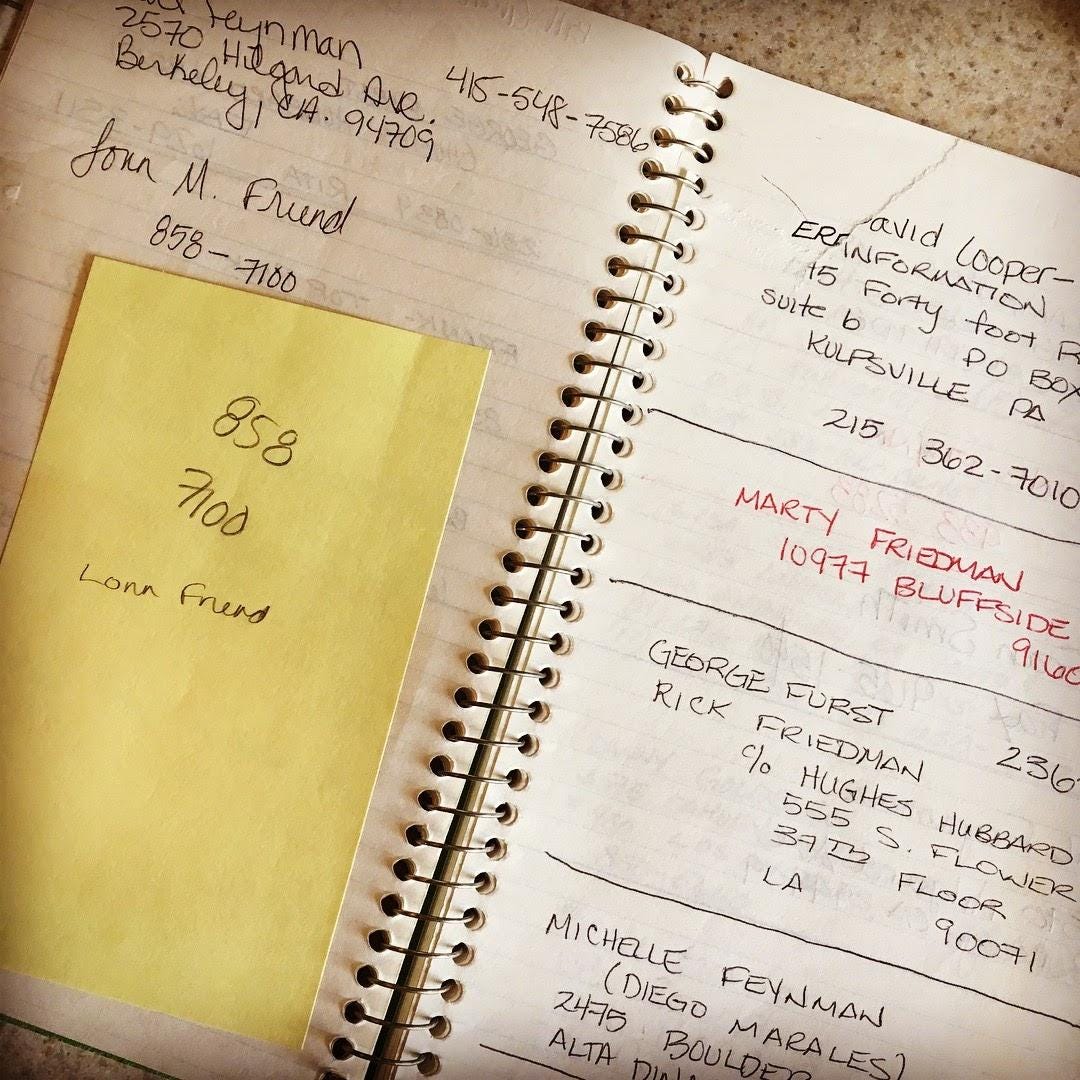 Feynman
2570 Hilgard Ave.
Berkeley, CA. 94709
415-548-7586
Lonn M. Friend
858-7100
858
7100
Lonn Friend
avid Cooper-
ERA INFORMATION
15 Forty foot R
suite b PO BOX
KULPSVILLE PA
215 362-7010
MARTY FRIEDMAN
10977 BLUFFSIDE
9160
GEORGE FURST 236
RICK FRIEDMAN
c/o HUGHES HUBBARD
555 S. FLOWER
37TH FLOOR
LA 90071
MICHELLE FEYNMAN
(DIEGO MARALES)
2475 BOULDER
ALTA DINA